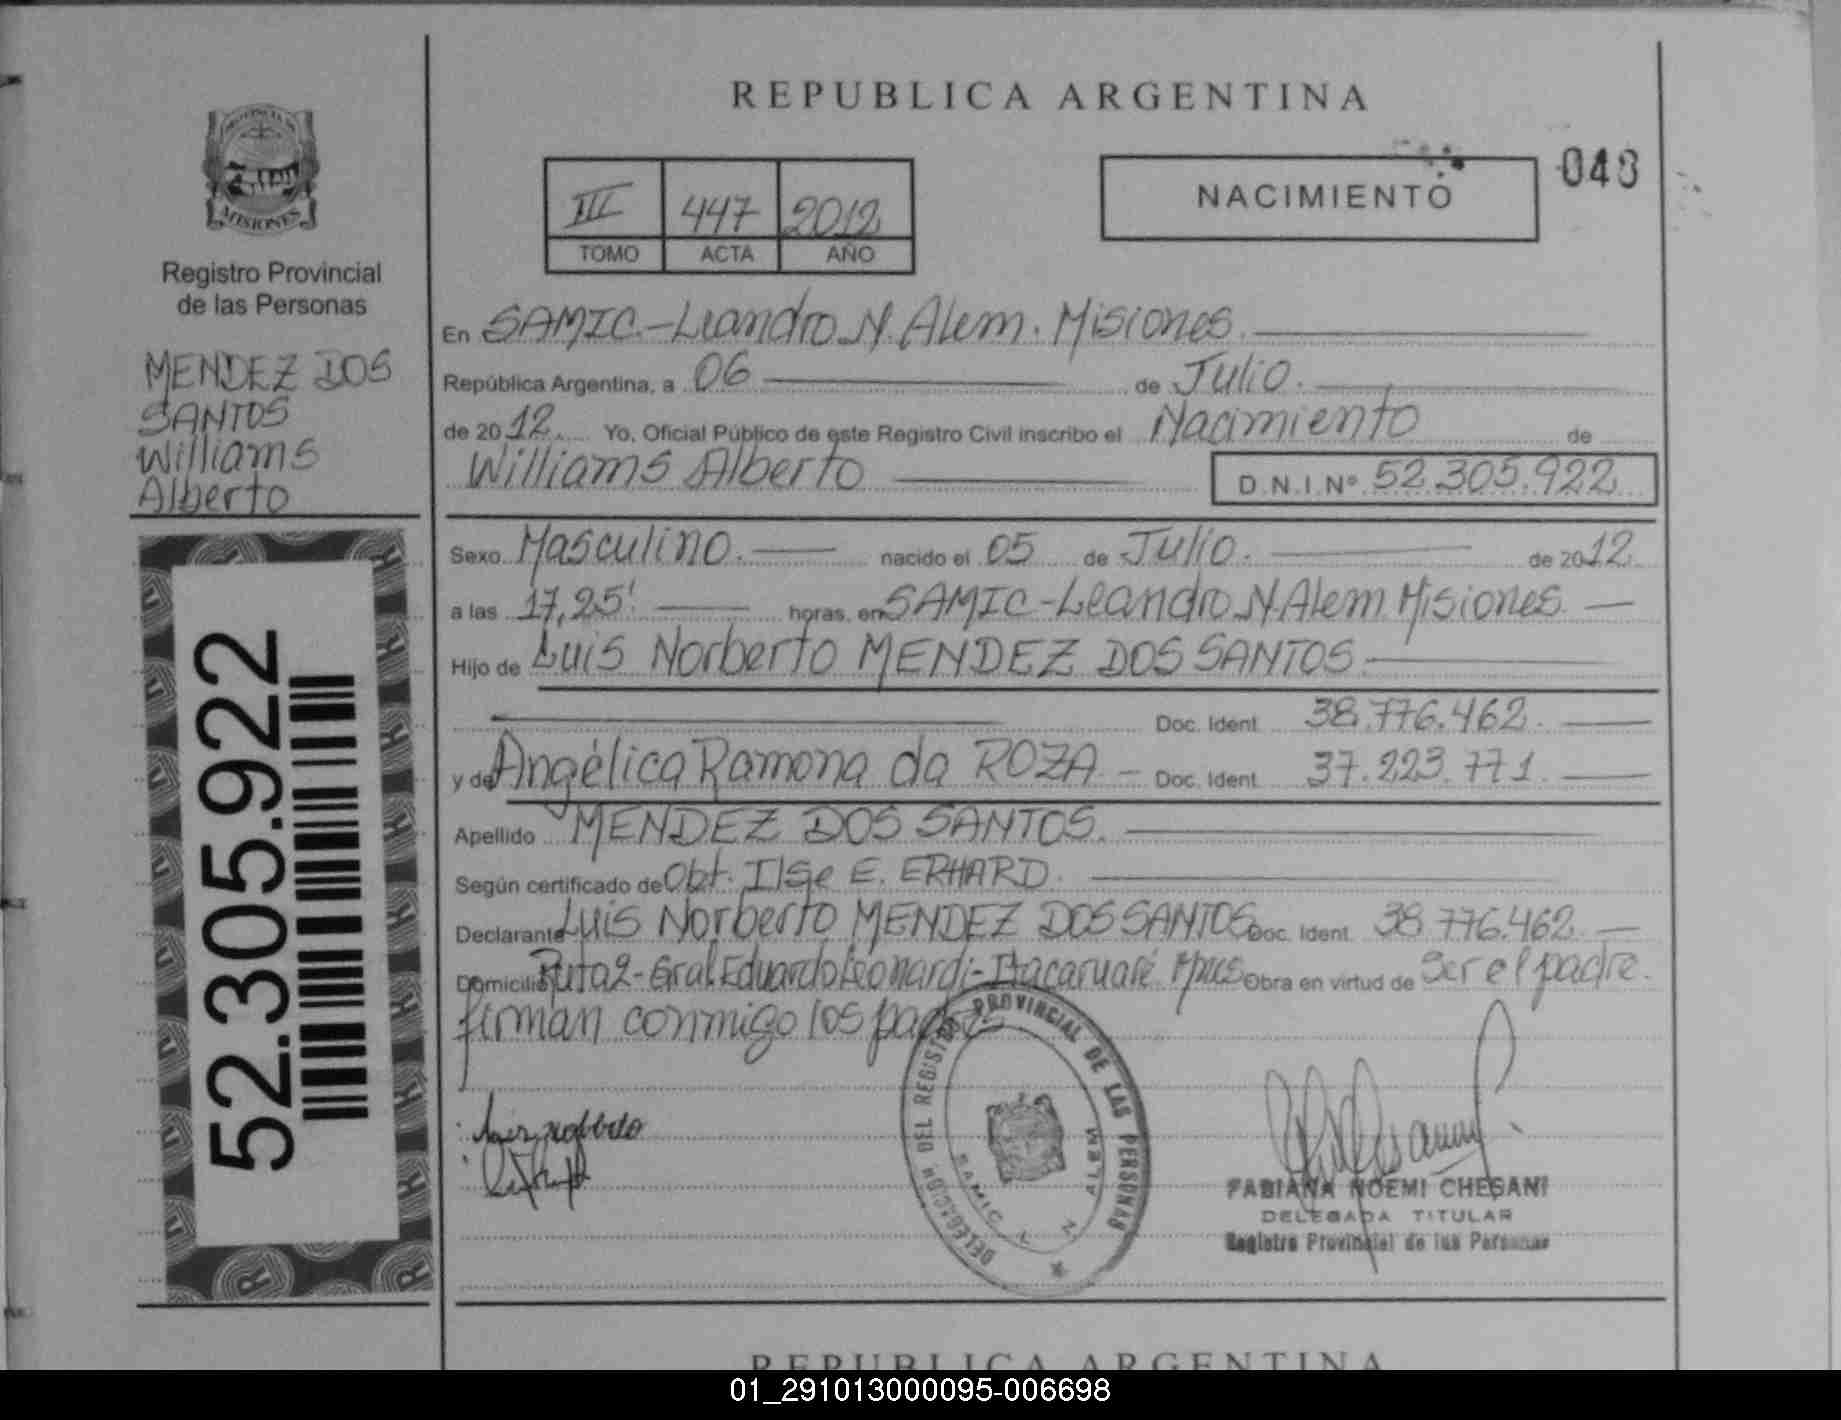 REPUBLICA ARGENTINA
III 447 2012
TOMO ACTA AÑO
NACIMIENTO
043
PROVINCIA DE
MISIONES
Registro Provincial
de las Personas
MENDEZ DOS
SANTOS
Williams
Alberto
52.305.922
En SAMIC-Leandro N. Alem. Misiones.
República Argentina, a 06 de Julio.
de 2012. Yo, Oficial Público de este Registro Civil inscribo el Nacimiento de
Williams Alberto D.N.I.Nº 52.305.922
Sexo Masculino. nacido el 05 de Julio. de 2012.
a las 17,25' horas, en SAMIC-Leandro N. Alem. Misiones.
Hijo de Luis Norberto MENDEZ DOS SANTOS.
Doc. Ident. 38.776.462.
y de Angélica Ramona da ROZA Doc. Ident. 37.223.771.
Apellido MENDEZ DOS SANTOS.
Según certificado de Obt. Ilse E. ERHARD.
Declarante Luis Norberto MENDEZ DOS SANTOS. Doc. Ident. 38.776.462.
Domicilio Ruta 2-Gral. Eduardo Leonardi-Itacaruaré. Mnes Obra en virtud de Ser el padre.
firman conmigo los padres
DELEGACION DEL REGISTRO PROVINCIAL DE LAS PERSONAS
SAMIC L. N. ALEM
FABIANA NOEMI CHESANI
DELEGADA TITULAR
Registro Provincial de las Personas
REPUBLICA ARGENTINA
01_291013000095-006698